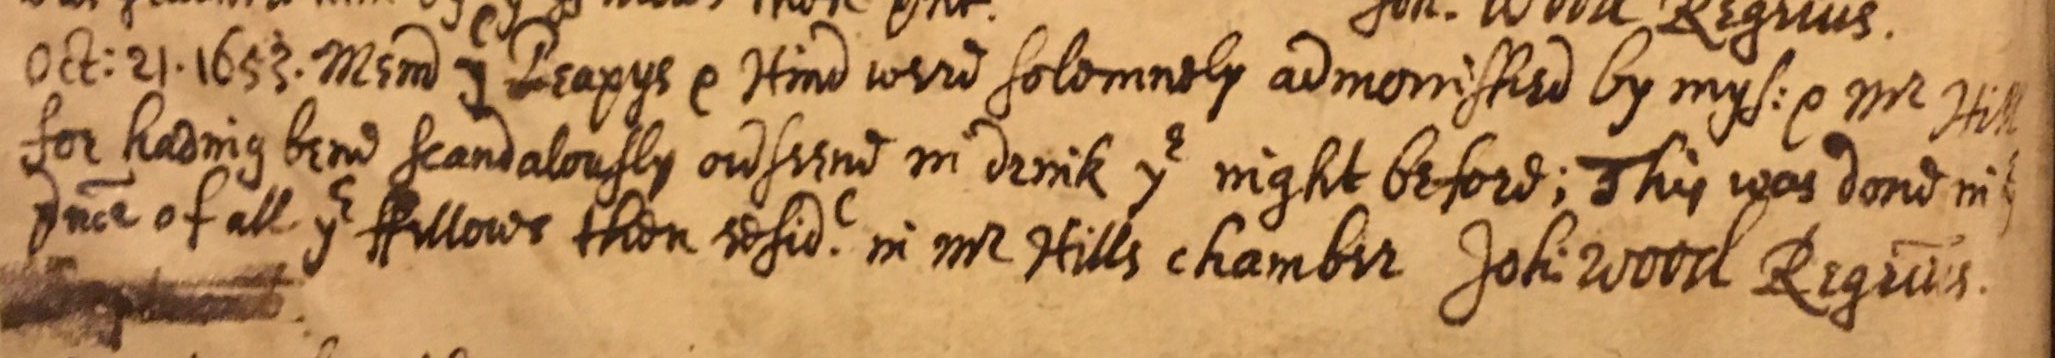 Joh. Wood Regrius.
Oct: 21. 1653. Memd yt Peapys & Hind were solemnely admonished by mys: & Mr Hill
for having bene scandalously overseene in drink ye night before; This was done in
pnce of all ye ffellows then resid. in Mr Hills chamber Joh. Wood Regrius.